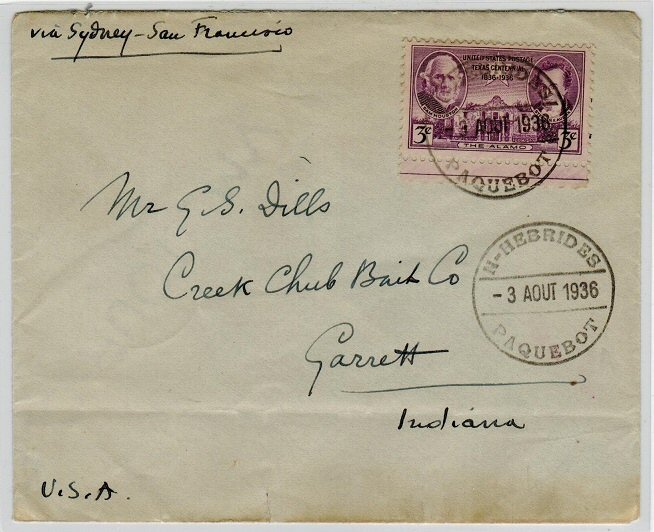 via Sydney - San Francisco
UNITED STATES POSTAGE
TEXAS CENTENNIAL
1836-1936
3¢ 3¢
THE ALAMO
- 3 AOUT 1936
PAQUEBOT
Mr G. S. Dills
Creek Chub Bait Co
Garrett
Indiana
U.S.A.
N-HEBRIDES
- 3 AOUT 1936
PAQUEBOT